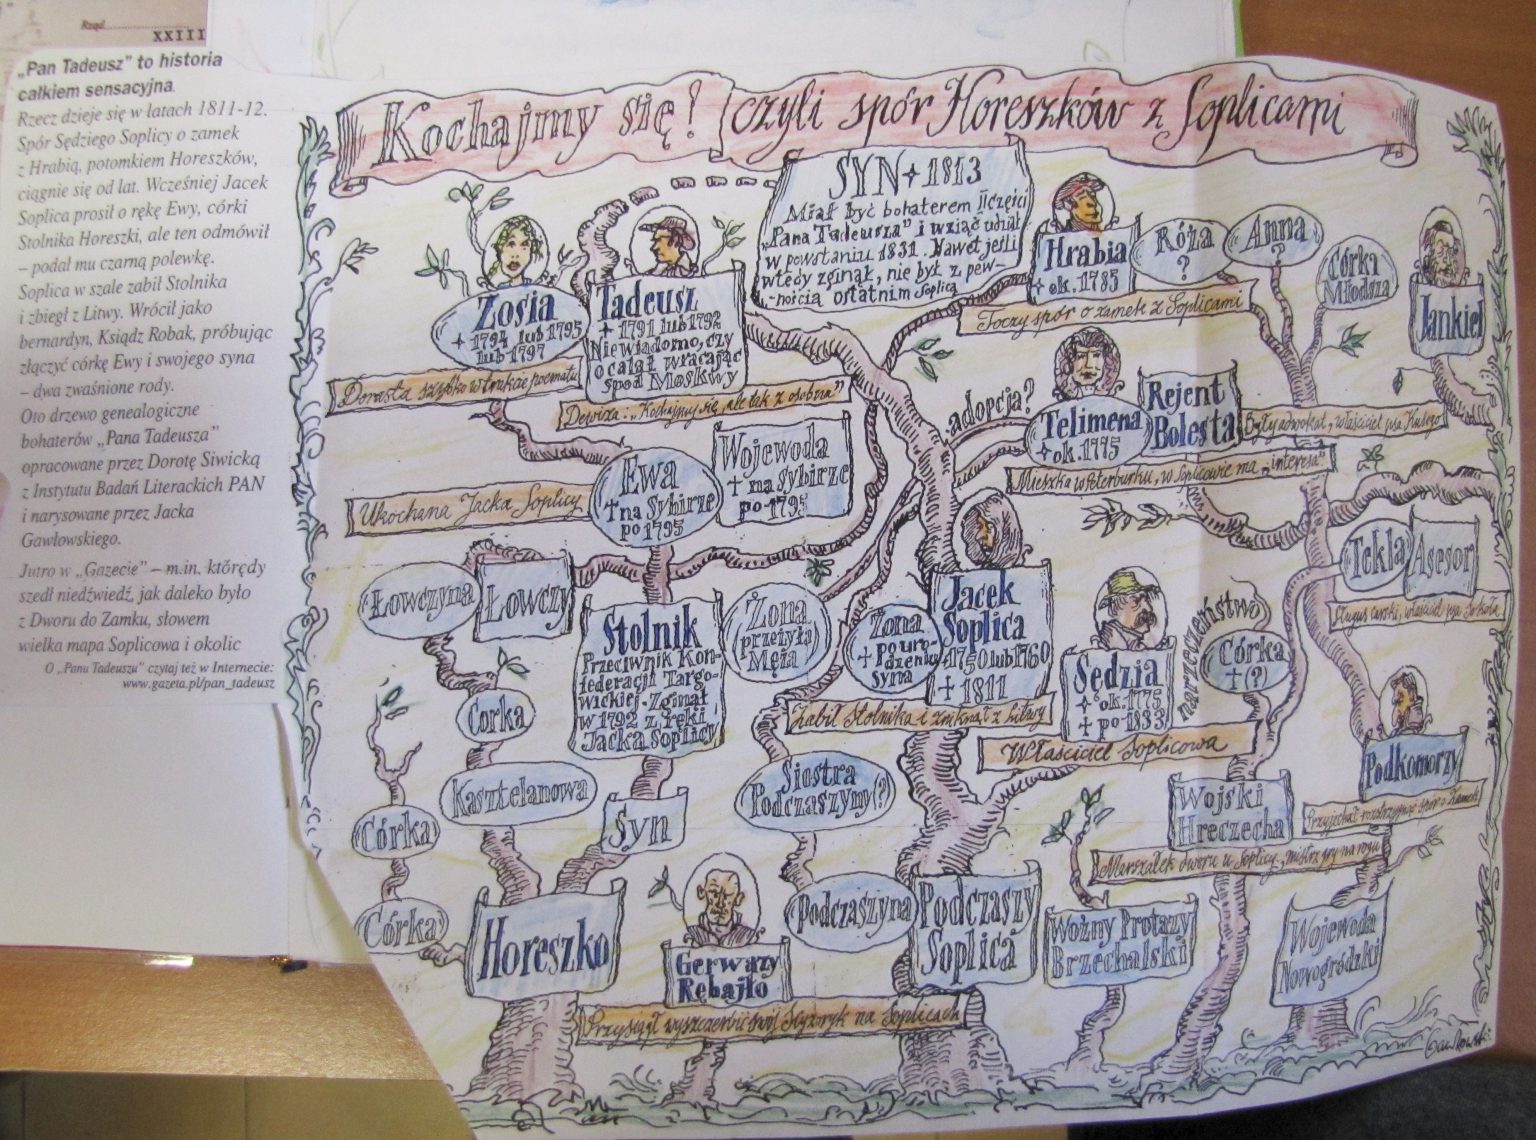 Rząd
XXIII
„Pan Tadeusz” to historia
całkiem sensacyjna.
Rzecz dzieje się w latach 1811-12.
Spór Sędziego Soplicy o zamek
z Hrabią, potomkiem Horeszków,
ciągnie się od lat. Wcześniej Jacek
Soplica prosił o rękę Ewy, córki
Stolnika Horeszki, ale ten odmówił
– podał mu czarną polewkę.
Soplica w szale zabił Stolnika
i zbiegł z Litwy. Wrócił jako
bernardyn, Ksiądz Robak, próbując
złączyć córkę Ewy i swojego syna
– dwa zwaśnione rody.
Oto drzewo genealogiczne
bohaterów „Pana Tadeusza”
opracowane przez Dorotę Siwicką
z Instytutu Badań Literackich PAN
i narysowane przez Jacka
Gawłowskiego.
Jutro w „Gazecie” – m.in. którędy
szedł niedźwiedź, jak daleko było
z Dworu do Zamku, słowem
wielka mapa Soplicowa i okolic
O „Panu Tadeuszu” czytaj też w Internecie:
www.gazeta.pl/pan_tadeusz
Kochajmy się! czyli spór Horeszków z Soplicami
SYN + 1813
Miał być bohaterem II części
„Pana Tadeusza” i wziąć udział
w powstaniu 1831. Nawet jeśli
wtedy zginął, nie był z pew-
-nością ostatnim Soplicą
Zosia
+ 1794 lub 1795
lub 1797
Dorasta szybko w trakcie poematu
Tadeusz
+ 1791 lub 1792
Nie wiadomo, czy
ocalał wracając
spod Moskwy
Dewiza: „Kochajmy się, ale tak z osobna”
Hrabia
+ ok. 1785
Toczy spór o zamek z Soplicami
Róża
?
Anna
?
Córka
Młodsza
Jankiel
adopcja?
Telimena
+ ok. 1775
Mieszka w Peterburku, w Soplicowie ma „interesa”
Rejent
Bolesta
Były adwokat, właściciel psa Kusego
Ewa
† na Sybirze
po 1795
Ukochana Jacka Soplicy
Wojewoda
† na Sybirze
po 1795
Łowczyna
Łowczy
Stolnik
Przeciwnik Kon-
federacji Targo-
wickiej. Zginął
w 1792 z ręki
Jacka Soplicy
Żona
(przeżyła)
Męża
Żona
† po uro-
dzeniu
syna
Jacek
Soplica
+ 1750 lub 1760
† 1811
Zabił Stolnika i zniknął z Litwy
Sędzia
+ ok. 1775
† po 1833
Właściciel Soplicowa
narzeczeństwo
Córka
† (?)
Tekla
Asesor
Sługus carski, właściciel psa Sokoła
Podkomorzy
Przyjechał rozstrzygnąć spór o Zamek
Córka
Kasztelanowa
Syn
Siostra
Podczaszyny(?)
Wojski
Hreczecha
Marszałek dworu u Soplicy, mistrz gry na rogu
Córka
Córka
Horeszko
Gerwazy
Rębajło
Przysiągł wyszczerbić swój Scyzoryk na Soplicach
Podczaszyna
Podczaszy
Soplica
Woźny Protazy
Brzechalski
Wojewoda
Nowogródzki
Gawłowski